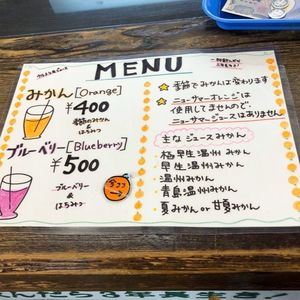 MENU
みかん[Orange]
¥400
季節のみかん
&
はちみつ
ブルーベリー[Blueberry]
¥500
ブルーベリー
&
はちみつ
季節でみかんは変わります
ニューサマーオレンジは
使用してませんので
ニューサマージュースはありません
主なジュースみかん
極早生温州みかん
早生温州みかん
温州みかん
青島温州みかん
夏みかん or 甘夏みかん